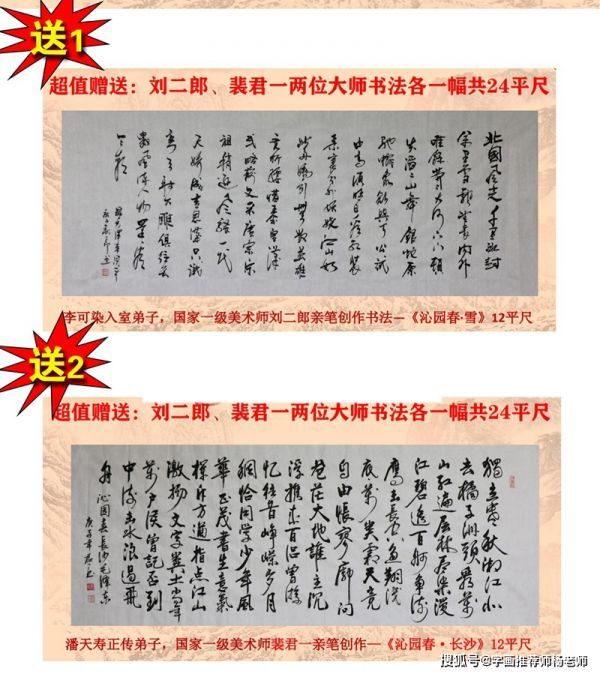 送1
超值赠送：刘二郎、裴君一两位大师书法各一幅共24平尺
北国风光千里冰封
万里雪飘望长城内外
惟余莽莽大河上下顿
失滔滔山舞银蛇原
驰蜡象欲与天公试
比高须晴日看红装
素裹分外妖娆江山如
此多娇引无数英雄
竞折腰惜秦皇汉
武略输文采唐宗宋
祖稍逊风骚一代
天骄成吉思汗只识
弯弓射大雕俱往矣
数风流人物还看
今朝
李可染入室弟子，国家一级美术师刘二郎亲笔创作书法—《沁园春·雪》12平尺
送2
超值赠送：刘二郎、裴君一两位大师书法各一幅共24平尺
独立寒秋湘江北
去橘子洲头看万
山红遍层林尽染漫
江碧透百舸争流
鹰击长空鱼翔浅
底万类霜天竞
自由怅寥廓问
苍茫大地谁主沉
浮携来百侣曾游
忆往昔峥嵘岁月
稠恰同学少年风
华正茂书生意气
挥斥方遒指点江山
激扬文字粪土当年
万户侯曾记否到
中流击水浪遏飞
舟 沁园春长沙毛泽东
潘天寿正传弟子，国家一级美术师裴君一亲笔创作—《沁园春·长沙》12平尺
搜狐号@字画推荐师杨老师